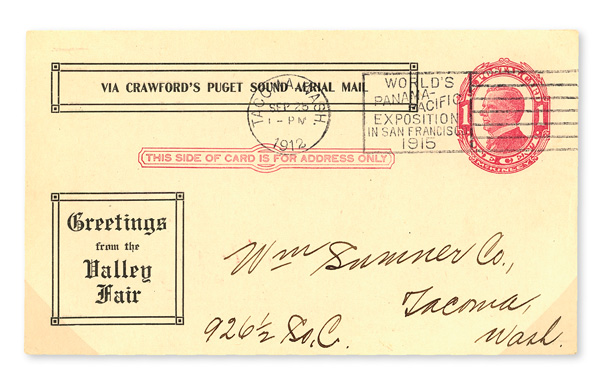 VIA CRAWFORD'S PUGET SOUND AERIAL MAIL
TACOMA, WASH.
SEP 25
1-PM
1912
WORLD'S
PANAMA-
PACIFIC
EXPOSITION
IN SAN FRANCISCO
1915
1 1
ONE CENT
MCKINLEY
THIS SIDE OF CARD IS FOR ADDRESS ONLY
Greetings
from the
Valley
Fair
Wm Sumner Co.,
Tacoma,
926½ So. C. Wash.